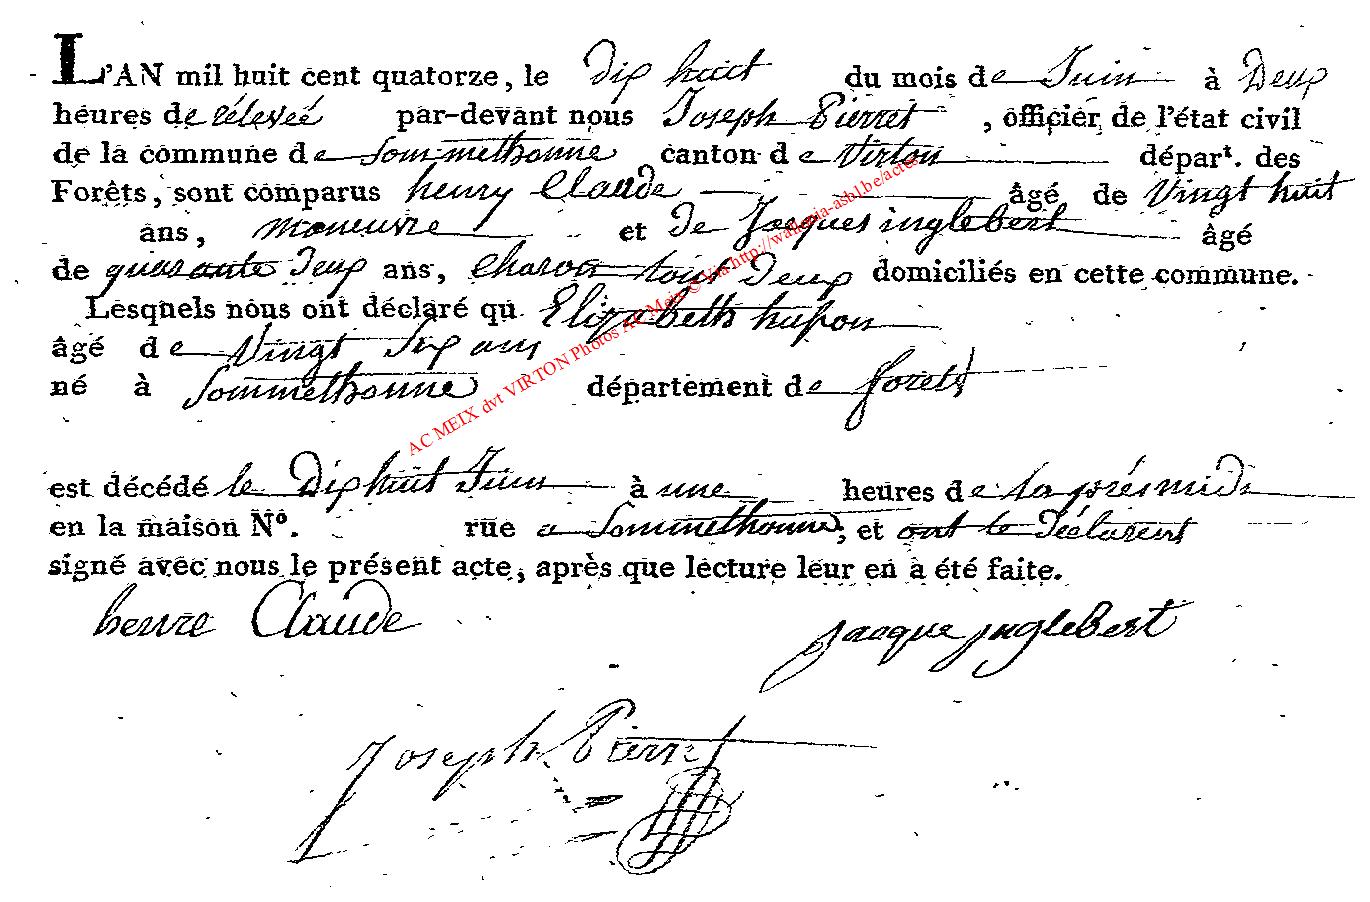 L'AN mil huit cent quatorze, le dix huit du mois de Juin à Deux
heures de relevée par-devant nous Joseph Pierret, officier de l'état civil
de la commune de Sommethonne canton de Virton départ. des
Forêts, sont comparus henry Claude âgé de Vingt huit
ans, maneuvre et de Jacques inglebert âgé
de quarante Deux ans, charon tous Deux domiciliés en cette commune.
Lesquels nous ont déclaré qu Elizabeth husson
âgé de Vingt Six ans
né à Sommethonne département de forets
est décédé le Dix huit Juin à une heures de laprésmidi
en la maison N°. rue a Sommethonne, et ont le Déclarent
signé avec nous le présent acte, après que lecture leur en a été faite.
henre Claude jacque jnglebert
Joseph Pierret
AC MEIX dvt VIRTON Photos AC Meix © Via http://wallonia-asbl.be/actes